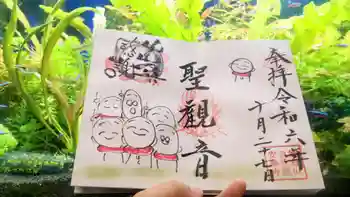 奉拝
令和六年
十月二十七日
聖觀音